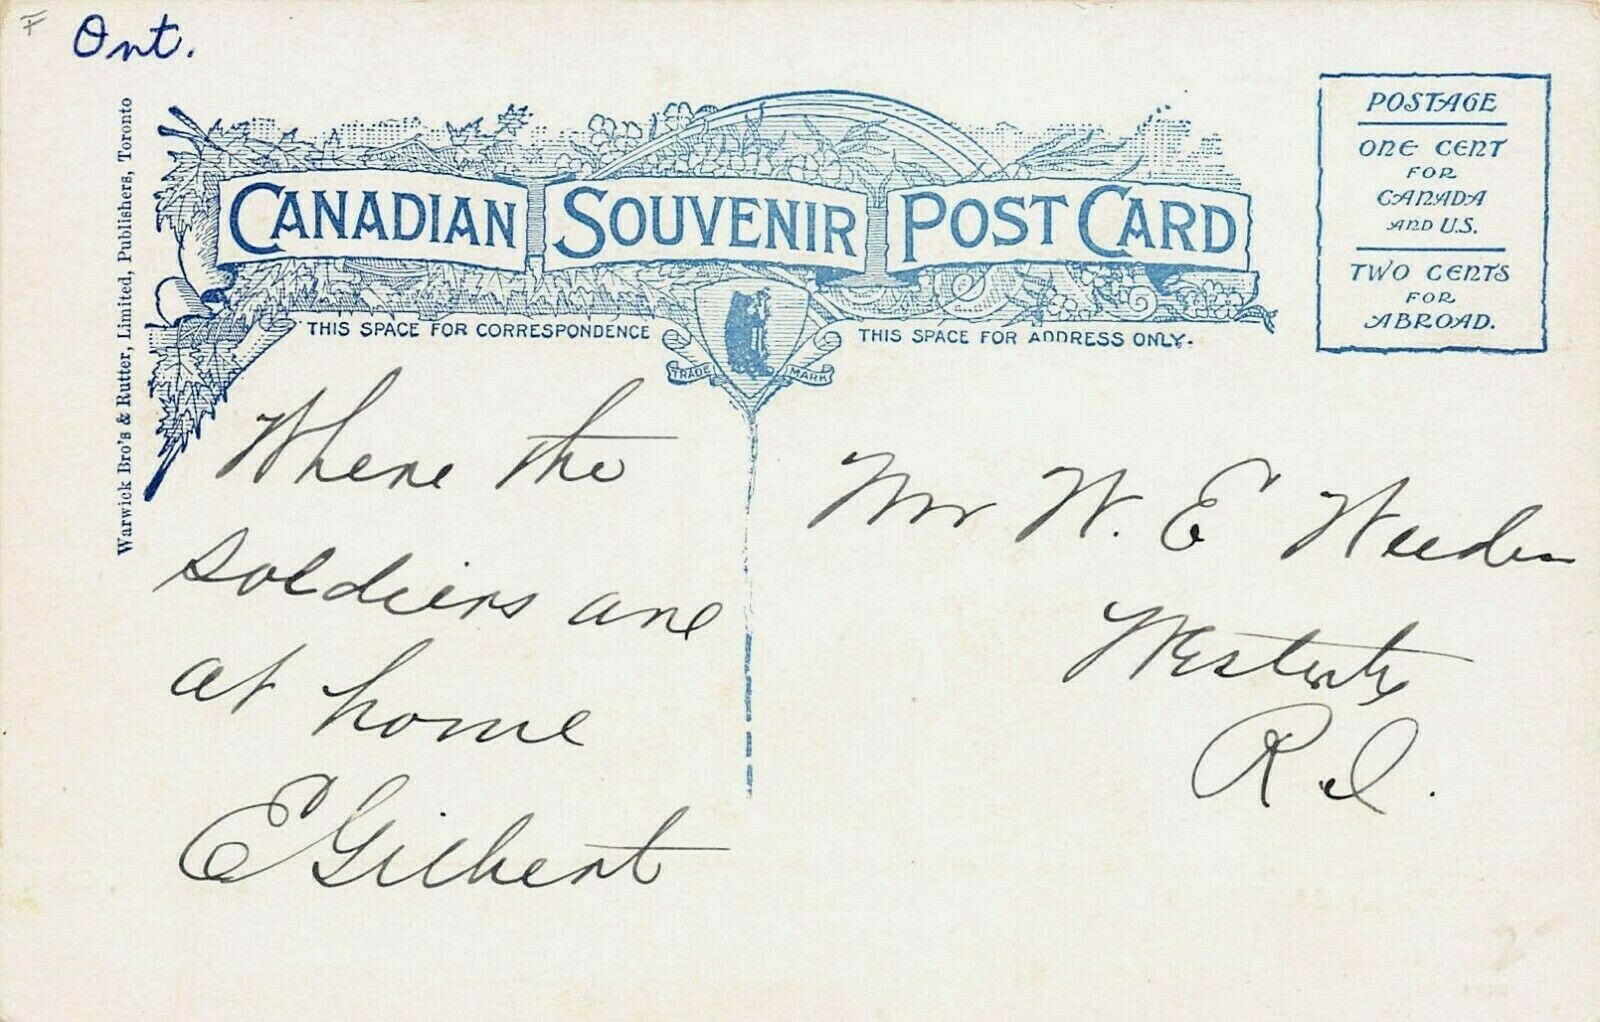 F
Ont.
Warwick Bro's & Rutter, Limited, Publishers, Toronto
CANADIAN SOUVENIR POST CARD
THIS SPACE FOR CORRESPONDENCE
THIS SPACE FOR ADDRESS ONLY.
TRADE MARK
POSTAGE
ONE CENT
FOR
CANADA
AND U.S.
TWO CENTS
FOR
ABROAD.
Where the
soldiers are
at home
E Gilbert
Mr W. E Weeden
Westerly
R.I.
2